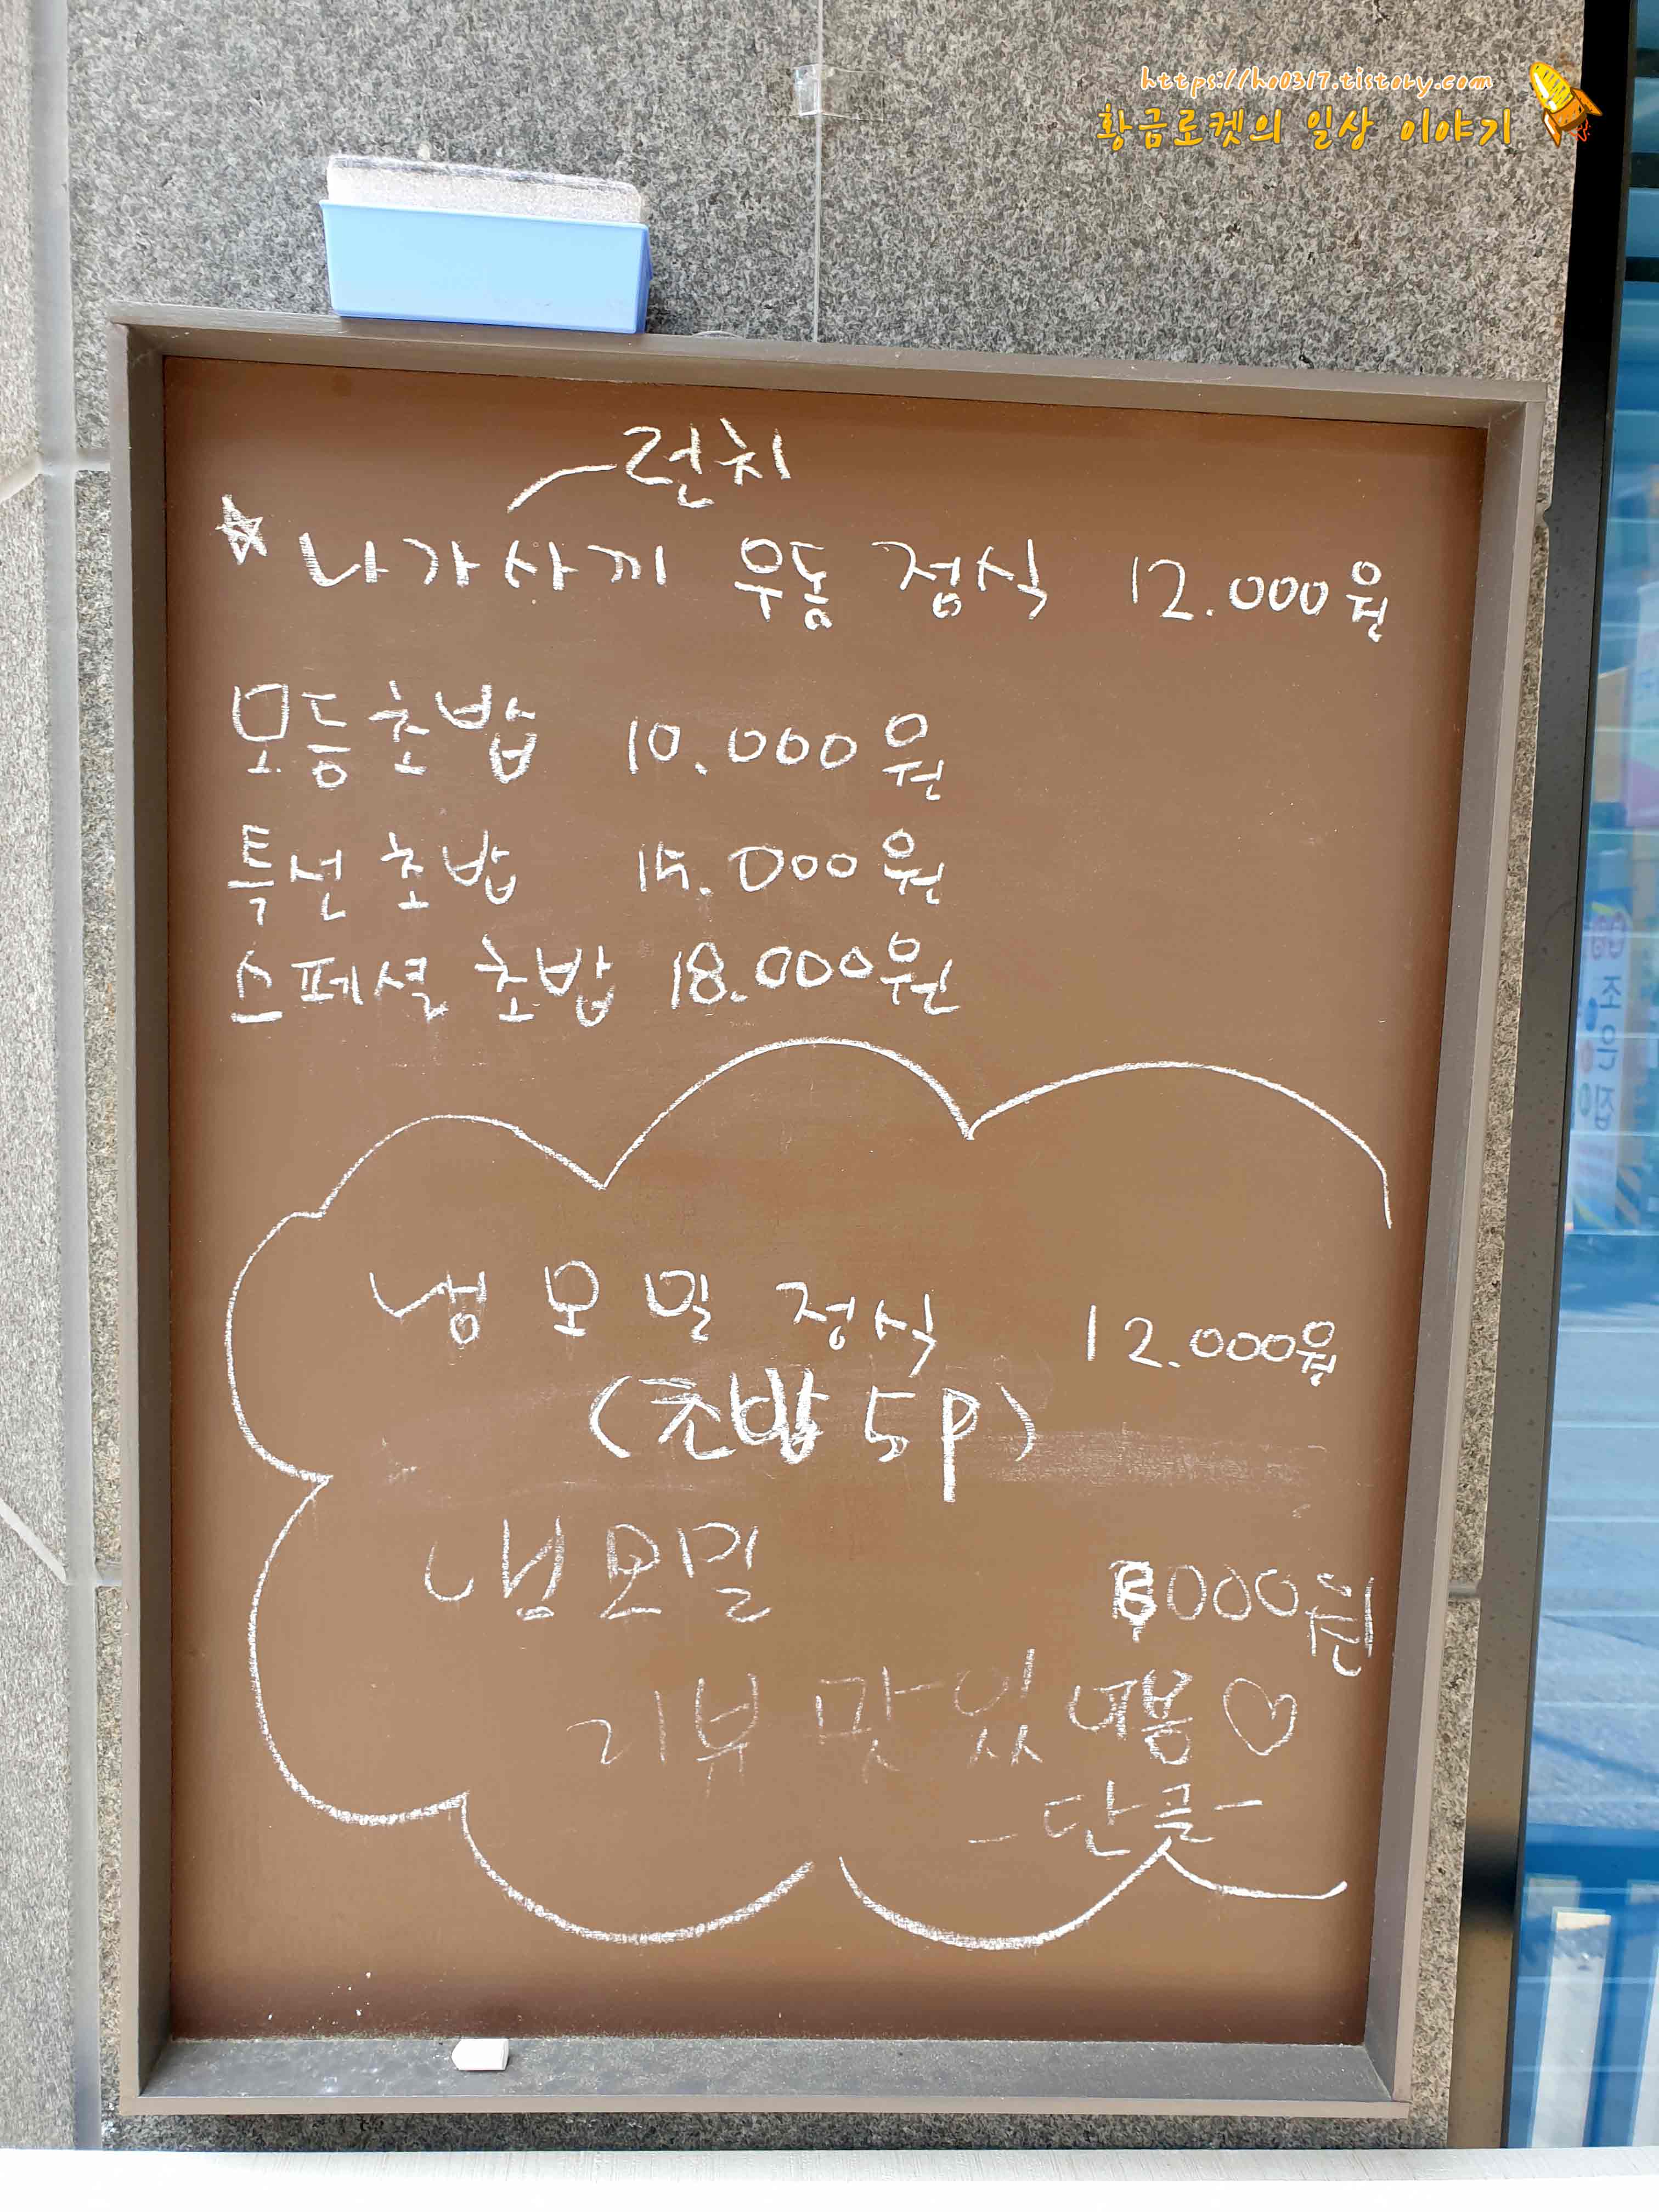 https://ho0317.tistory.com
황금로켓의 일상 이야기
런치
나가사끼 우동 정식 12.000원
모듬초밥 10.000원
특선 초밥 15.000원
스페셜 초밥 18.000원
냉모밀 정식 12.000원
(초밥 5P)
냉모밀 000원
리뷰 맛있
-단골-
조인